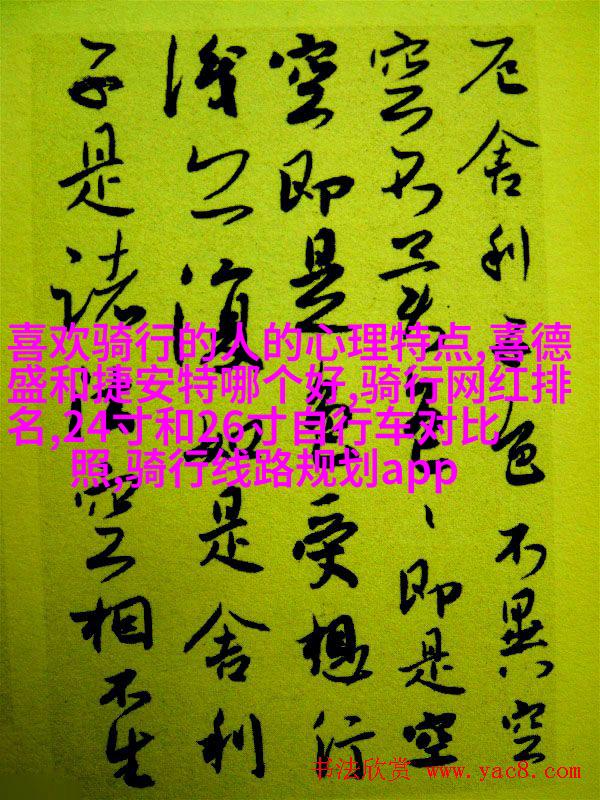 厄舍利子色不異空
空不異色色即是空
空即是色受想行
識亦復如是舍利
子是諸法空相不生
喜欢骑行的人的心理特点,喜德
盛和捷安特哪个好,骑行网红排
名,24寸和26寸自行车对比
照,骑行线路规划app
书法欣赏 www.yac8.com